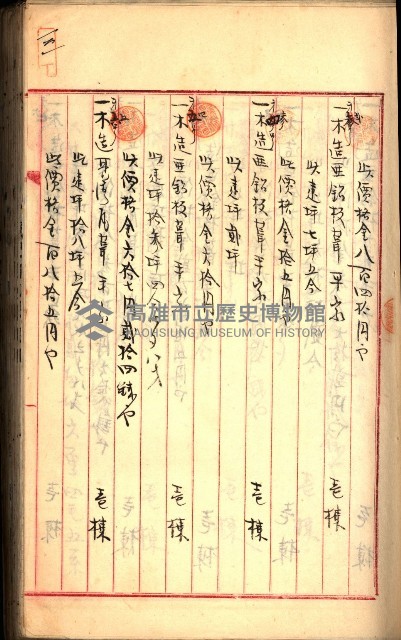 此價格金八百四拾円也
一木造亜鉛板葺平家 壱棟
此建坪七坪五合
此價格金拾五円也
一木造亜鉛板葺平家 壱棟
此建坪貳坪
此價格金六拾円也
一木造亜鉛板葺平家 壱棟
此建坪拾参坪四合
此價格金六拾七円貳拾四銭也
一木造臺湾瓦葺平家 壱棟
此建坪拾八坪五合
此價格金百八拾五円也
高雄市立歷史博物館
KAOHSIUNG MUSEUM OF HISTORY